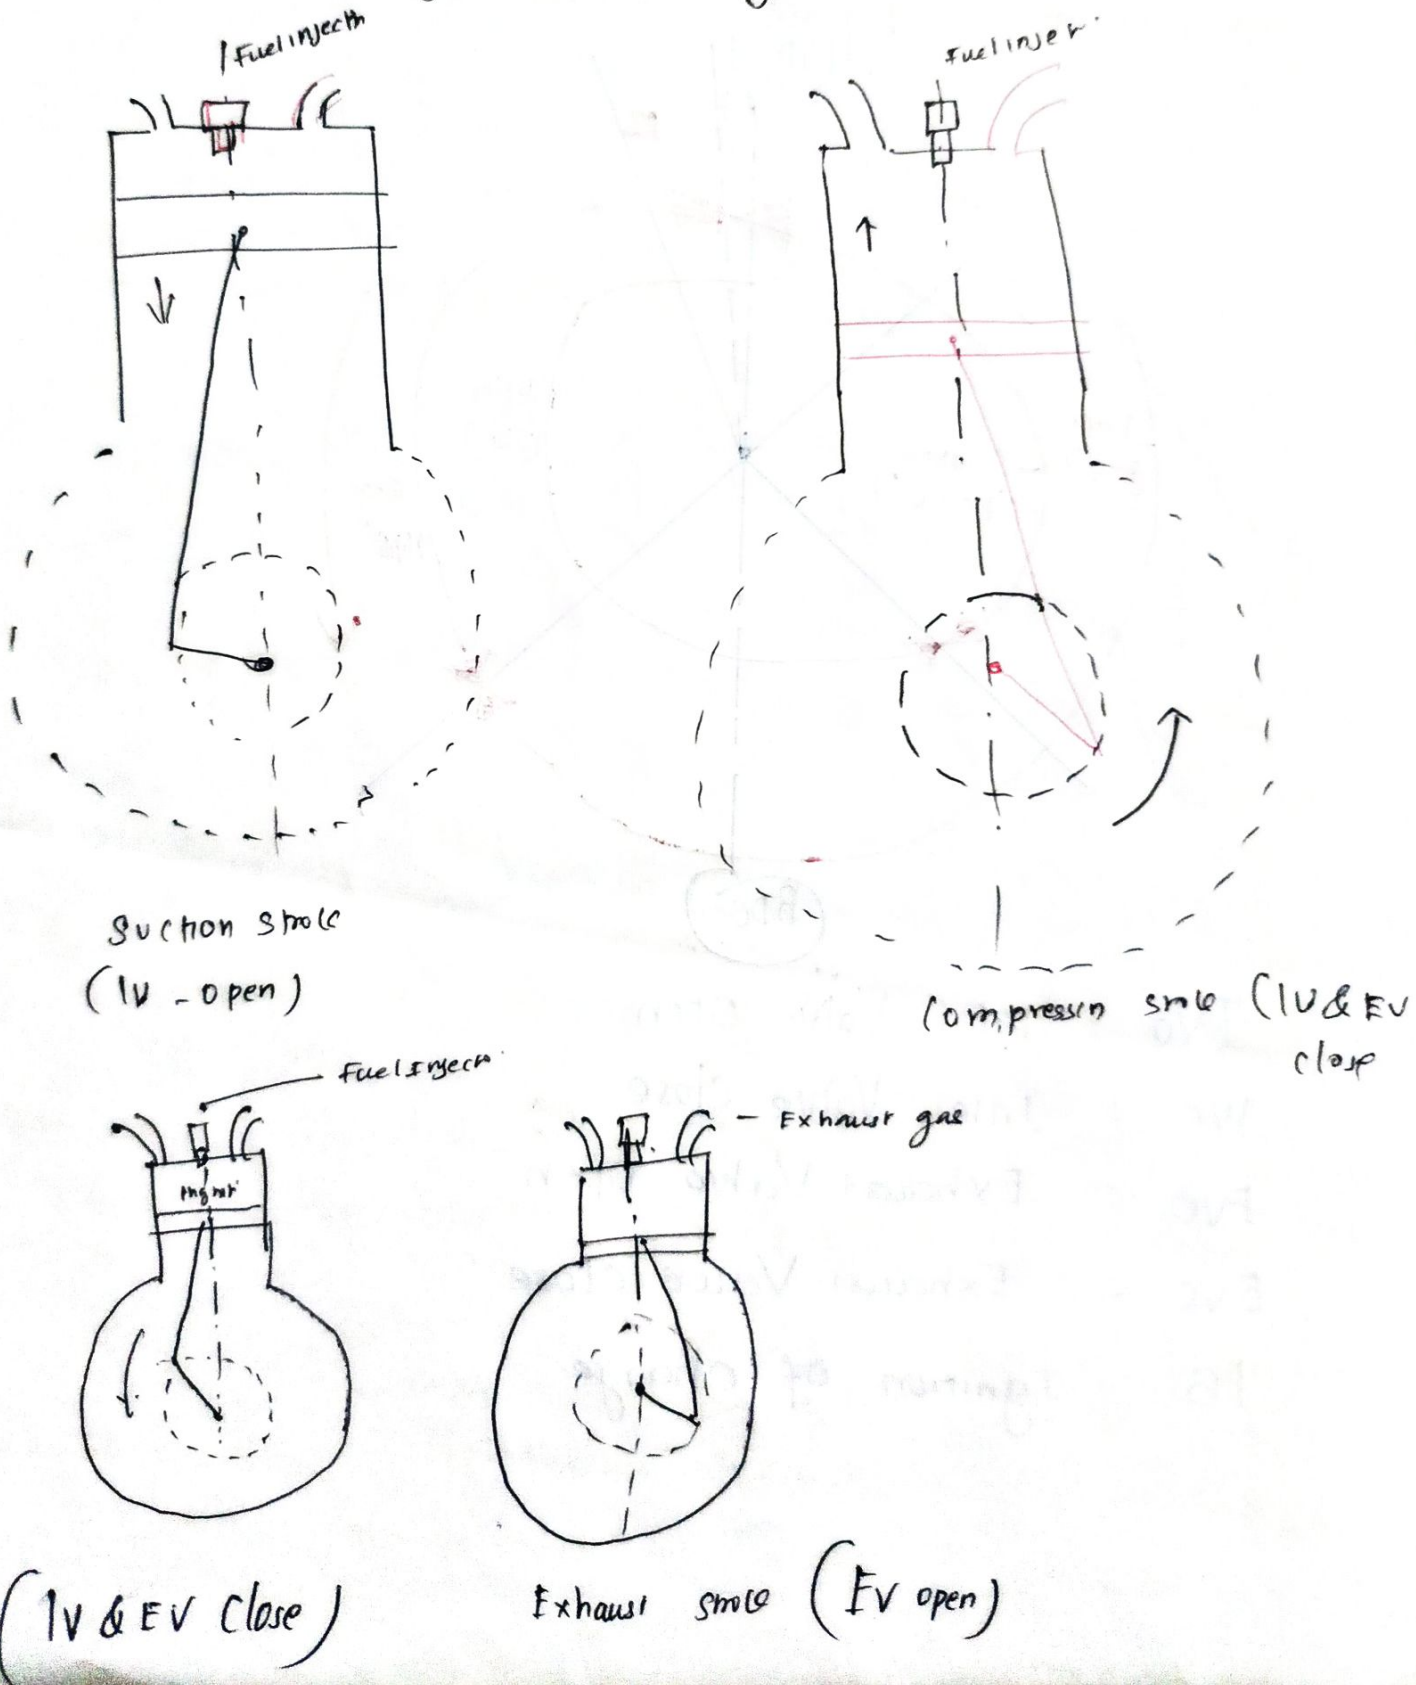 Fuel injectn
Fuel injer
Suction stroke
(IV - open)
Compressin stroke (IV & EV
close
Fuel Injectn
Exhaust gas
(IV & EV Close)
Exhaust stroke (EV open)